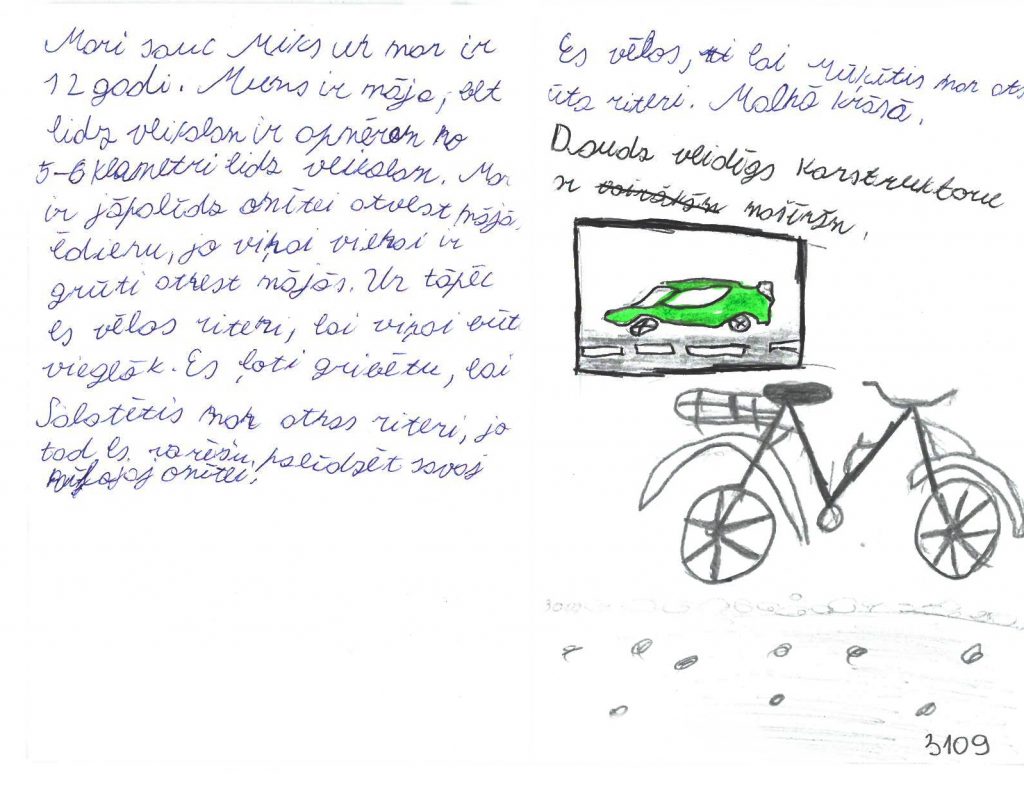 Mani sauc Miks un man ir
12 gadi. Mums ir māja, bet
lidz veikalam ir apmēram no
5-6 klametri lidz veikalam. Man
ir jāpalīdz omītei atvest mājā
ēdienu, jo viņai vienai ir
grūti atnest mājās. Un tāpēc
es vēlos riteni, lai viņai būtu
vieglāk. Es ļoti gribētu, lai
Salatētis man atnes riteni, jo
tad es varēšu palīdzēt savai
omītei.
Es vēlos, lai Rūķītis man ats
ūta riteni. Melnā krāsā.
Daudz veidīgs Konstruktoru
ar mašīnām.
3109